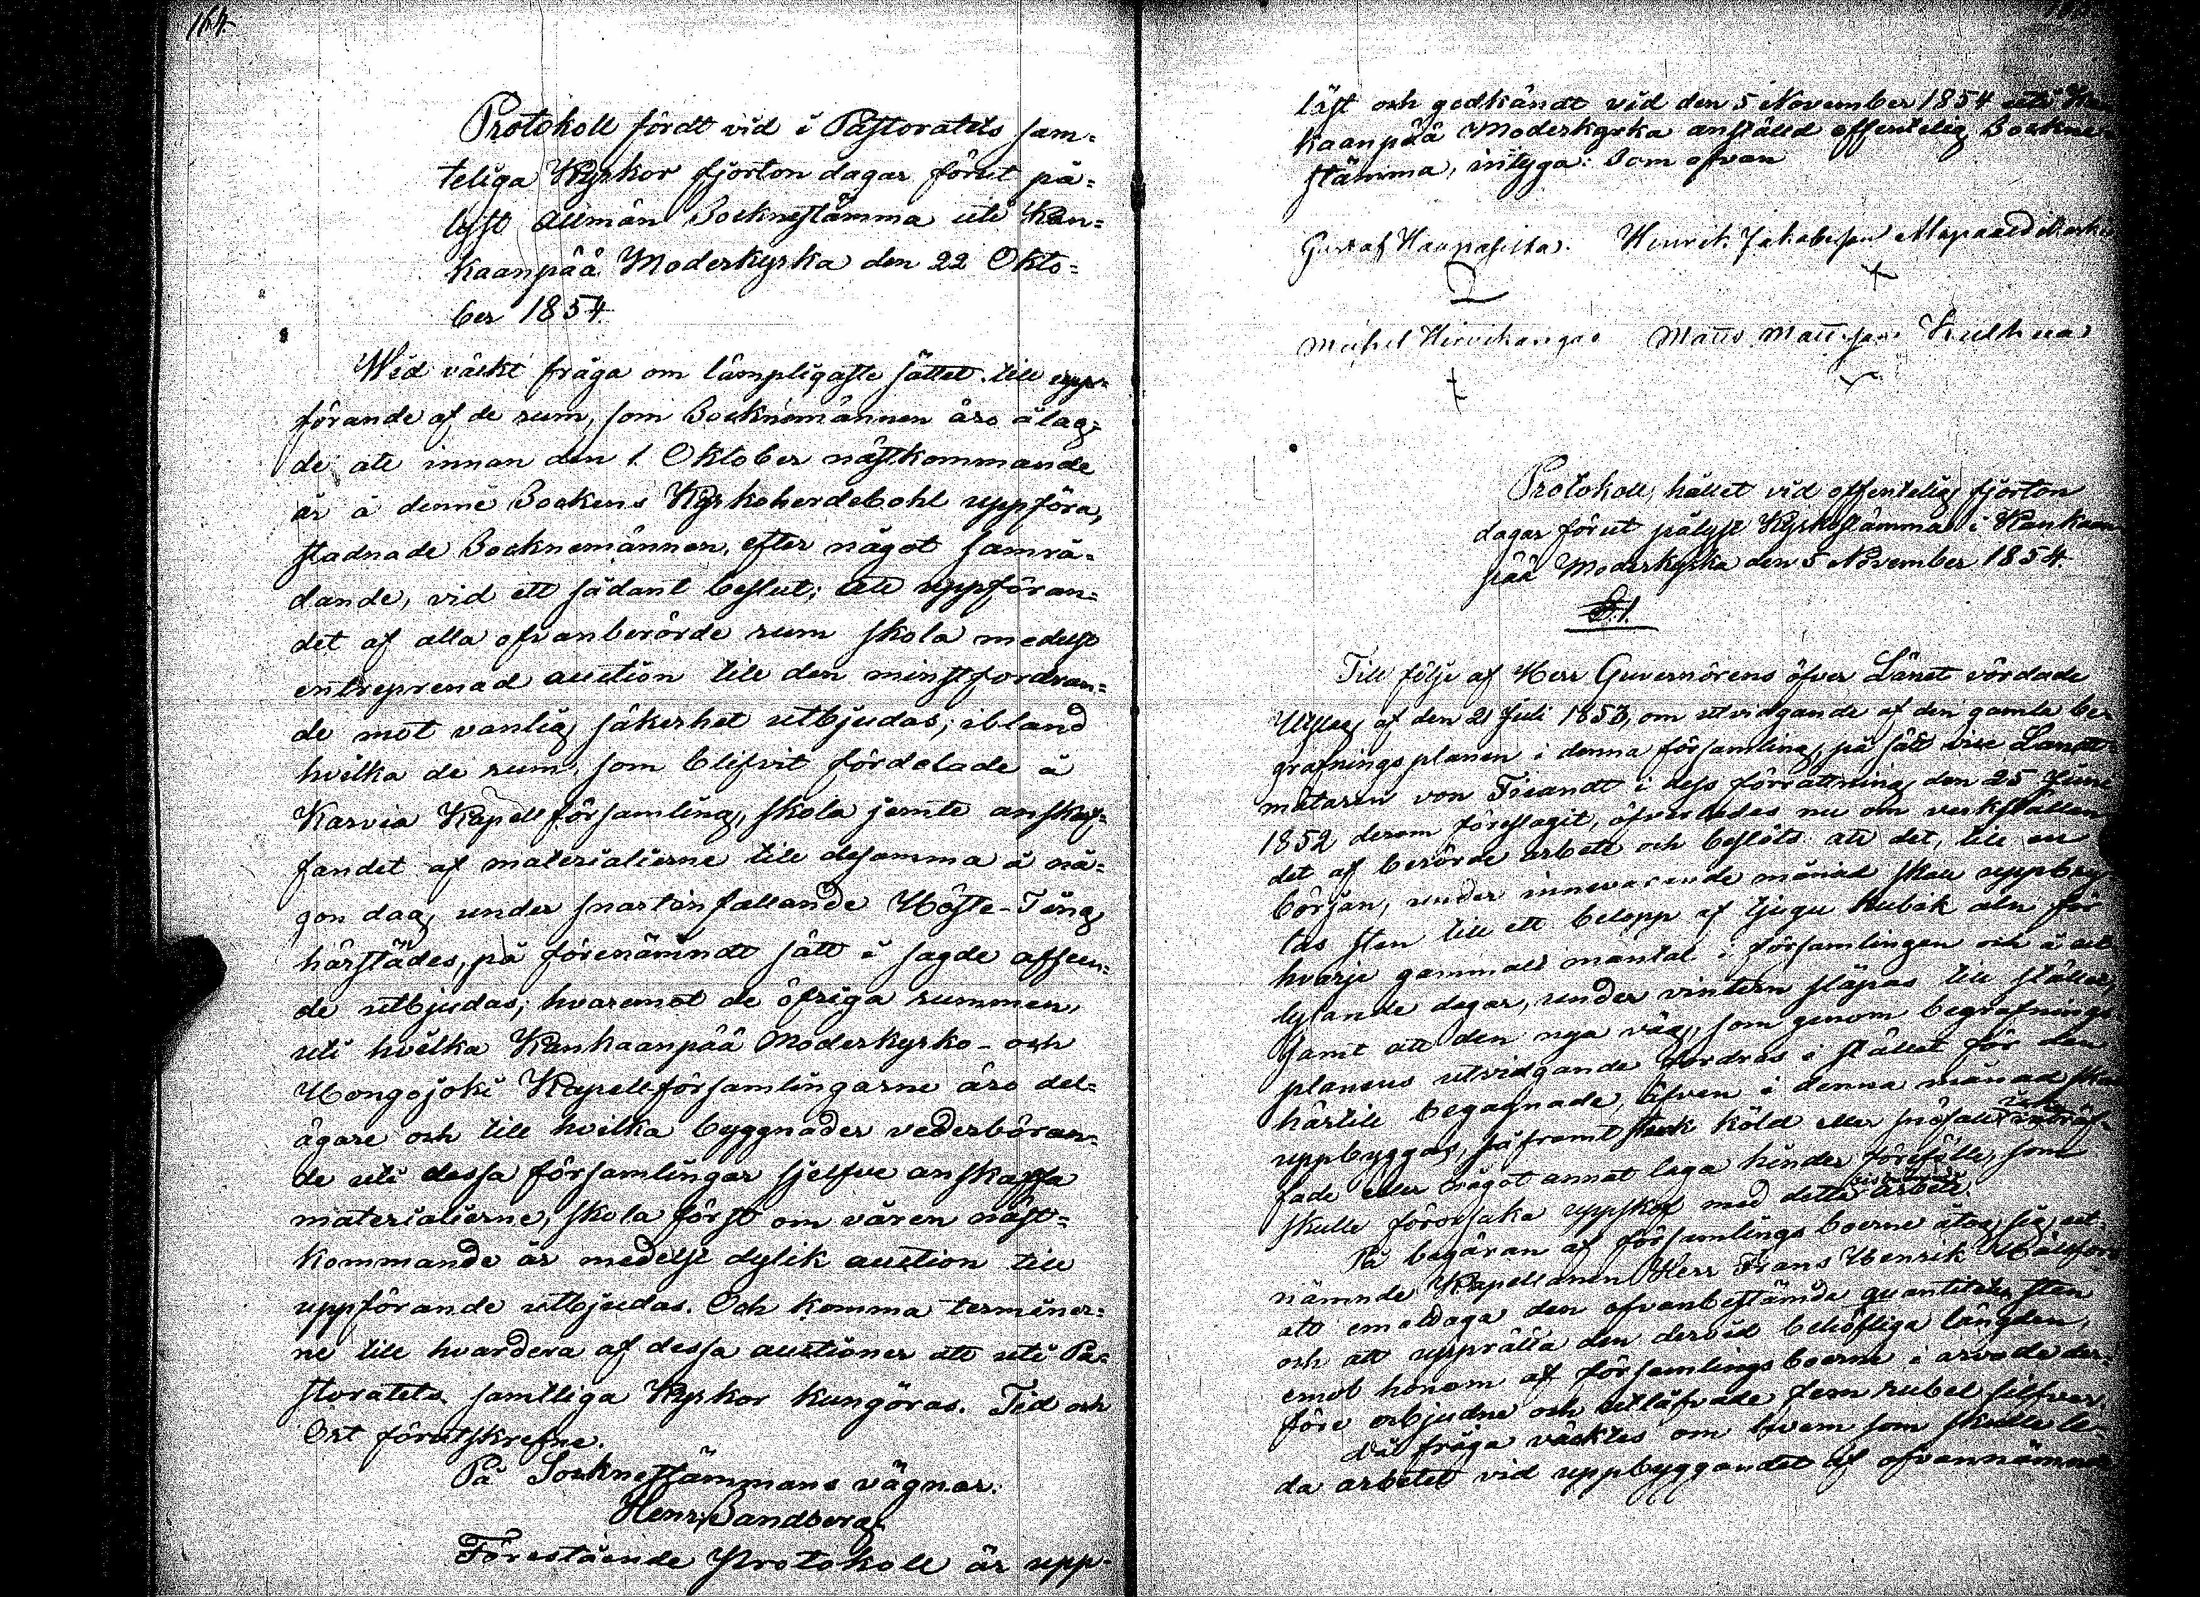 164.
Protokoll fördt vid i Pastoratets sam-
teliga Kyrkor fjorton dagar förut på-
lyst allmän Socknestämma uti Kan-
kaanpää Moderkyrka den 22 Okto-
ber 1854.
Wid väckt fråga om lämpligaste sättet till upp-
förande af de rum, som Socknemännen äro ålag-
de att innan den 1. Oktober nästkommande
år å denne Sockens Kyrkoherdebohl uppföra,
stadnade Socknemännen, efter något samrå-
dande, vid ett sådant beslut; att uppföran-
det af alla ofvanberörde rum skola medelst
entreprenad auction till den minstfordran-
de mot vanlig säkerhet utbjudas; ibland
hvilka de rum, som blifvit fördelade å
Karvia Kapellförsamling, skola jemte anskaf-
fandet af materialierne till desamma å nå-
gon dag under snartinfallande Höste-Ting
härstädes, på förenämndt sätt i sagde afseen-
de utbjudas; hvaremot de öfriga rummen,
uti hvilka Kankaanpää Moderkyrko- och
Hongojoki Kapellförsamlingarne äro del-
ägare och till hvilka byggnader vederböran-
de uti dessa församlingar sjelfve anskaffa
materialierne, skola först om våren näst-
kommande år medelst dylik auction till
uppförande utbjudas. Och komma terminer-
ne till hvardera af dessa auctioner att uti Pa-
storatets samtliga Kyrkor kungöras. Tid och
Ort förutskrefne.
På Socknestämmans vägnar:
Henr. Sandberg
Förestående Protokoll är upp-
läst och godkändt vid den 5 November 1854 uti Kan
kaanpää Moderkyrka anstäld offentelig Sockne-
stämma, intyga: Som ofvan
Gustaf Haapasilta. Henrik Jakobsson
Michel Hirvikangas Matts Mattsson
Protokoll, hållet vid offentelig, fjorton
dagar förut pålyst Kyrkostämma i Kankaan
pää Moderkyrka den 5 November 1854.
§.1.
Till följe af Herr Guvernörens öfver Länet vördade
Utslag af den 21 Juli 1853, om utvidgande af den gamla be-
grafningsplanen i denna församling, på sätt vice Landt-
mätaren von Fieandt i dess förrättning den 25 Juni
1852 derom föreslagit, öfverlades nu om verkställan
det af berörde arbete och beslöts att det, till en
början, under innevarande månad skall uppbry-
tas sten till ett belopp af tjugu kubik aln för
hvarje gammalt mantal i församlingen och å
lysande dagar, under vintern släpas till stället,
samt att den nya väg, som genom begrafnings
planens utvidgande fordras i stället för den
härtill begagnade, äfven i denna månad ska
uppbyggas, såframt stark köld eller snöfall
fade eller något annat laga hinder förefälle, som
skulle förorsaka uppskof med detta arbete.
På begäran af församlingsboerne åtog sig
nämnde Kapellanen Herr Frans Henrik
att emottaga den ofvanbestämda quantiteten sten
och att upprätta den dervid behöfliga längden,
emot honom af församlingsboerne i arvode der-
före erbjudne och utlåfvade fem rubel silfver.
Då fråga väcktes om hvem som skulle le-
da arbetet vid uppbyggandet af ofvannämnde